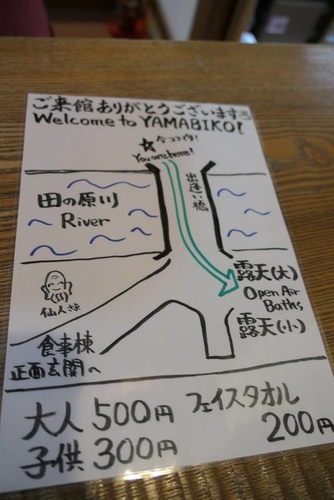 ご来館ありがとうございます
Welcome to YAMABIKO!
今ココです!
You are here!
出逢い橋
田の原川
River
露天(大)
Open Air
Baths
露天(小)
仙人さま
食事棟
正面玄関へ
大人 500円
子供 300円
フェイスタオル
200円